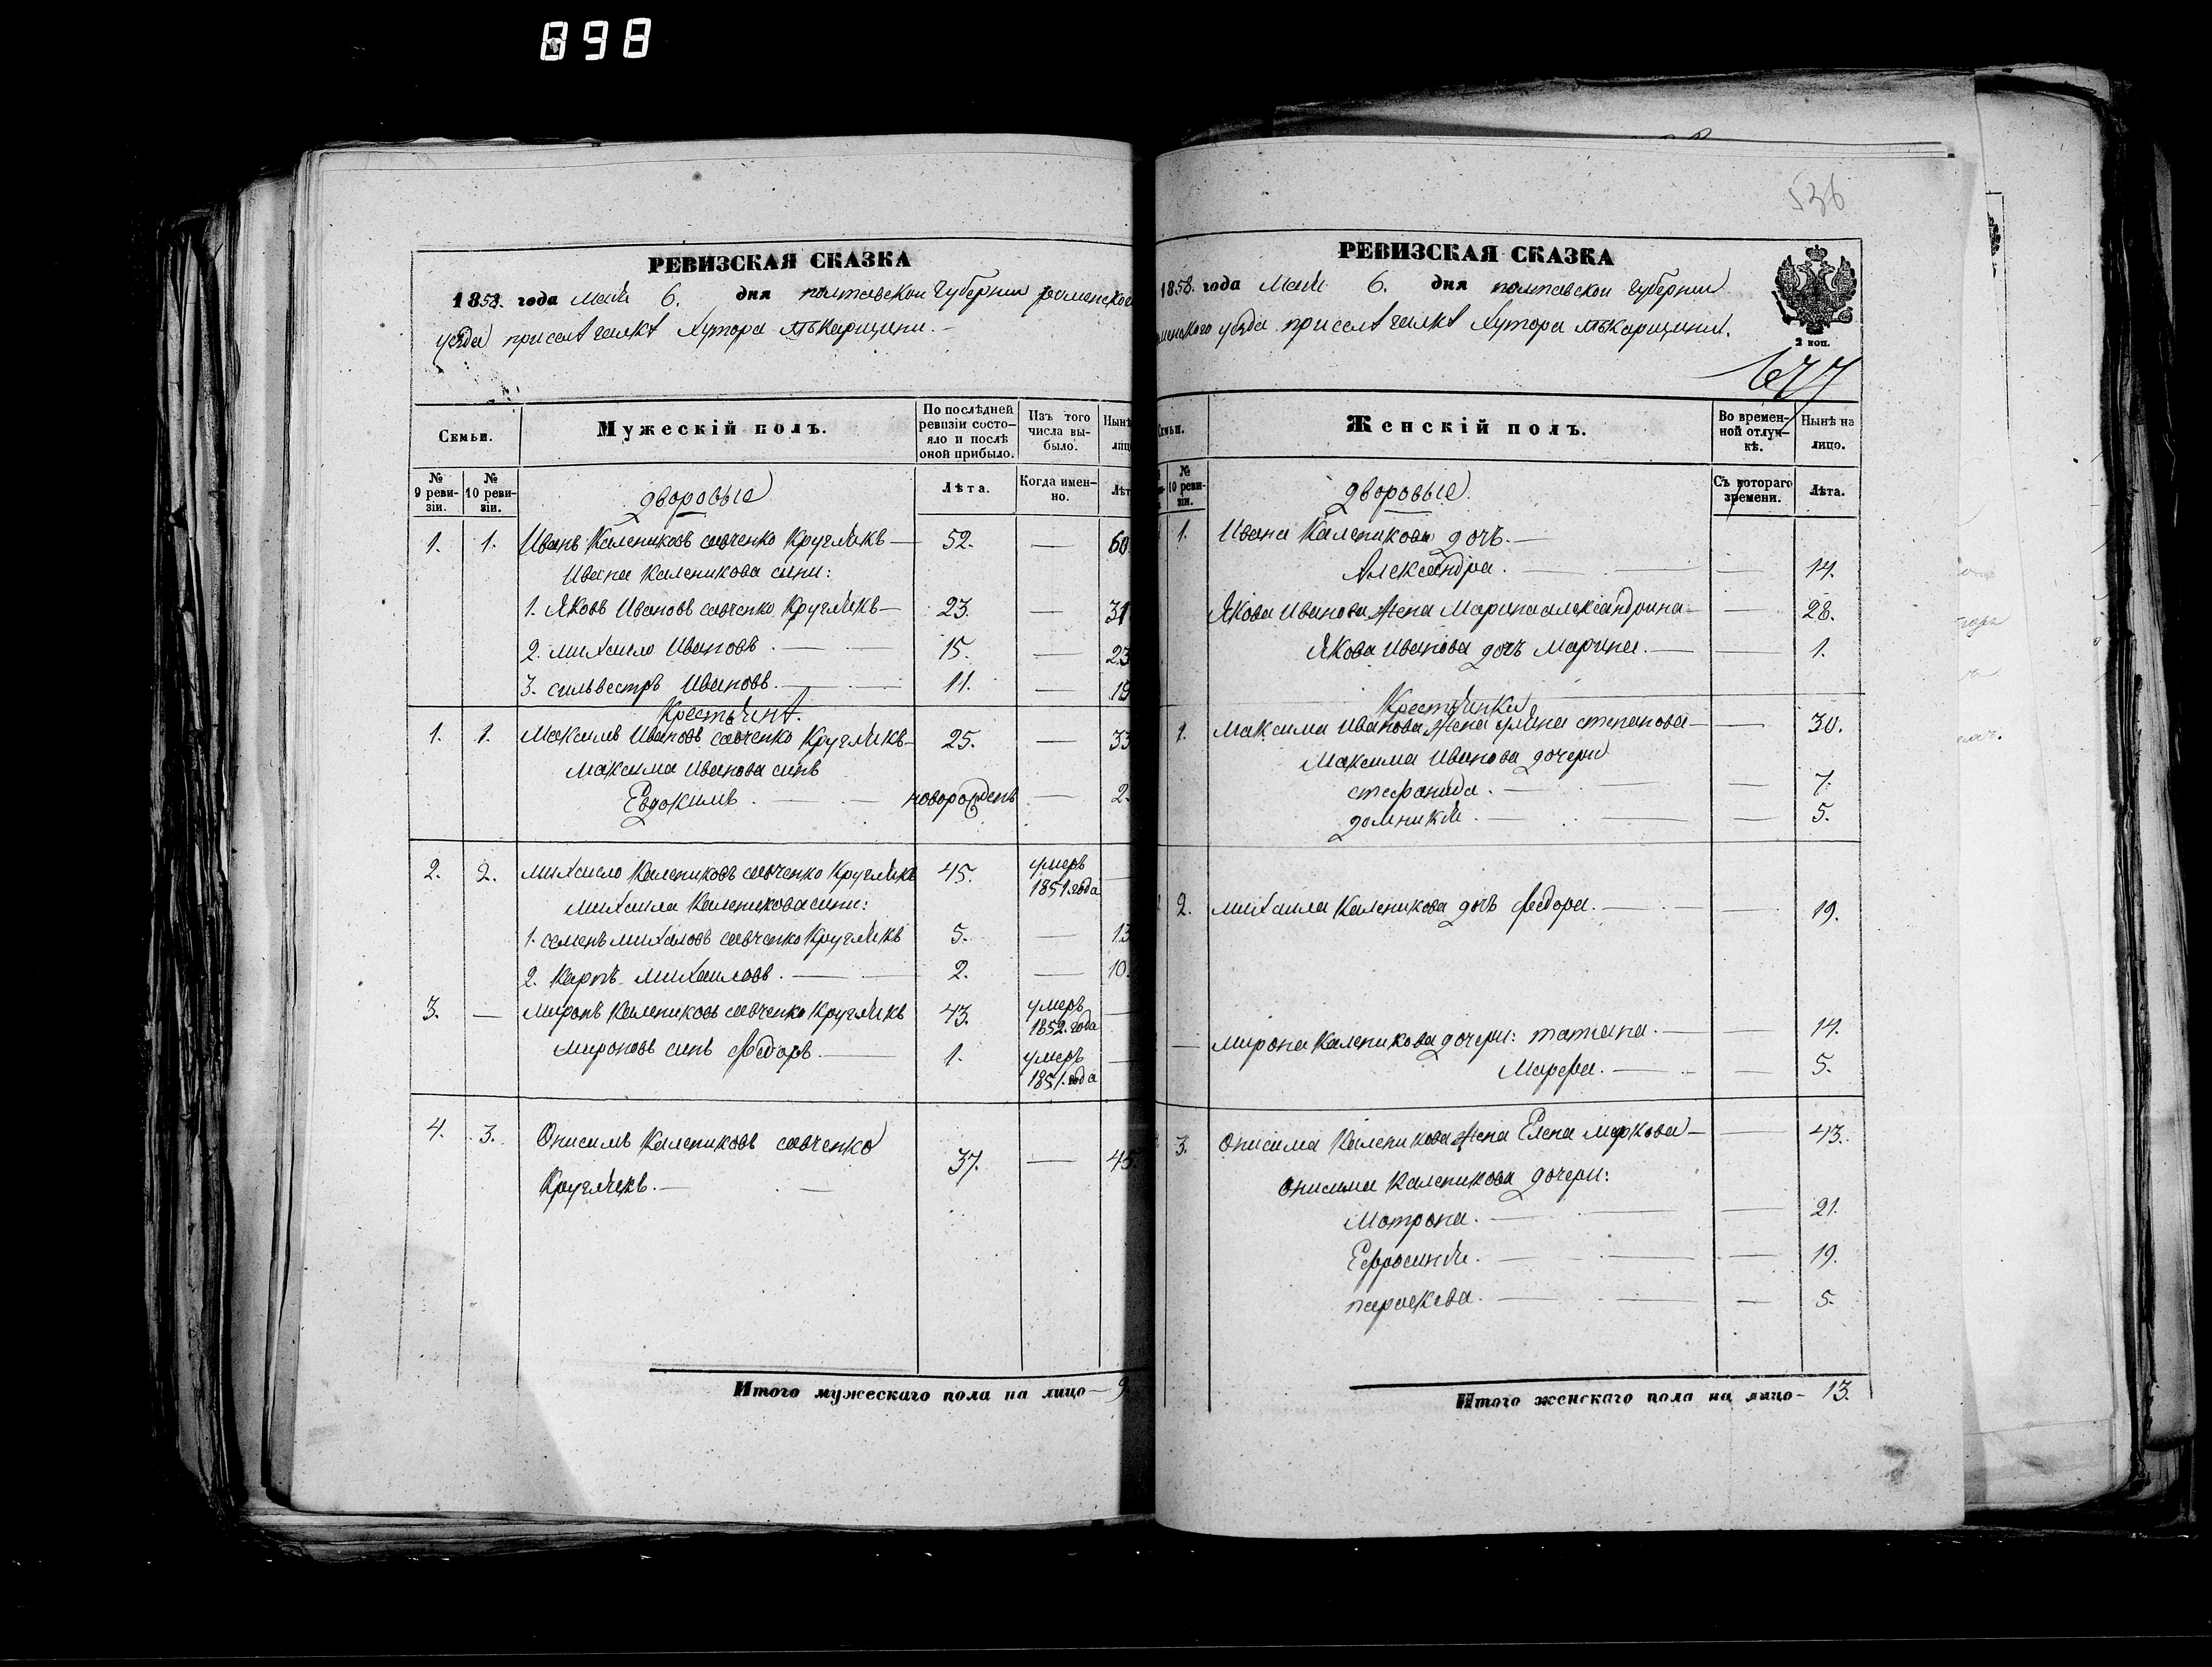 898
РЕВИЗСКАЯ СКАЗКА
1858. года Мая 6. дня полтавской Губернии роменского
уезда при селе галке Хутора
Семьи.
Мужескій полъ.
По послѣдней ревизіи состо-яло и послѣ оной прибыло.
Изъ того числа вы-было.
Нынѣ
лиц
№ 9 реви-зіи.
№ 10 реви-зіи.
дворовые
Лѣта.
Когда имен-но.
Лѣт
1. 1. Иванъ Калениковъ савченко Круглякъ — 52. — 60
Ивана Каленикова сини:
1. Яковъ Ивановъ савченко Круглякъ — 23. — 31
2. михаило Ивановъ. — 15. — 23
3. сильвестръ Ивановъ. — 11. — 19
Крестьяне.
1. 1. Максимъ Ивановъ савченко Круглякъ — 25. — 33
Максима Иванова синъ
Евдокимъ. — новорожденъ — 2.
2. 2. михаило Калениковъ савченко Круглякъ 45. умеръ 1851 года —
михаила Каленикова сини:
1. семенъ михаловъ савченко Круглякъ 5. — 13
2. Карпъ михаиловъ. — 2. — 10.
3. — миронъ Калениковъ савченко Круглякъ 43. умеръ 1852. года —
мироновъ синъ Федоръ. — 1. умеръ 1851. года —
4. 3. Онисимъ Калениковъ савченко
Круглякъ. — 37. — 45.
Итого мужескаго пола на лицо — 9.
536
РЕВИЗСКАЯ СКАЗКА
1858. года Мая 6. дня полтавской Губернии
роменского уезда при селе галке Хутора
2 коп.
677
Семьи.
Женскій полъ.
Во времен-ной отлуч-кѣ.
Нынѣ на лицо.
№ 10 реви-зіи.
дворовые.
Съ котораго времени.
Лѣта.
1. Ивана Каленикова дочъ. —
Александра. — — 14.
Якова Иванова жена Марина александрина — — 28.
Якова Иванова дочъ Марина. — — 1.
Крестьянки
1. Максима Иванова жена улияна степанова — — 30.
Максима Иванова дочери
стефанида. — — 7.
домникия. — — 5.
2. михаила Каленикова дочъ Федора. — — 19.
— мирона Каленикова дочери: татияна. — — 14.
Марфа. — — 5.
3. Онисима Каленикова жена Елена маркова — — 43.
Онисима Каленикова дочери:
Мотрона. — — 21.
Ефросиния. — — 19.
параскева. — — 5.
Итого женскаго пола на лицо — 13.